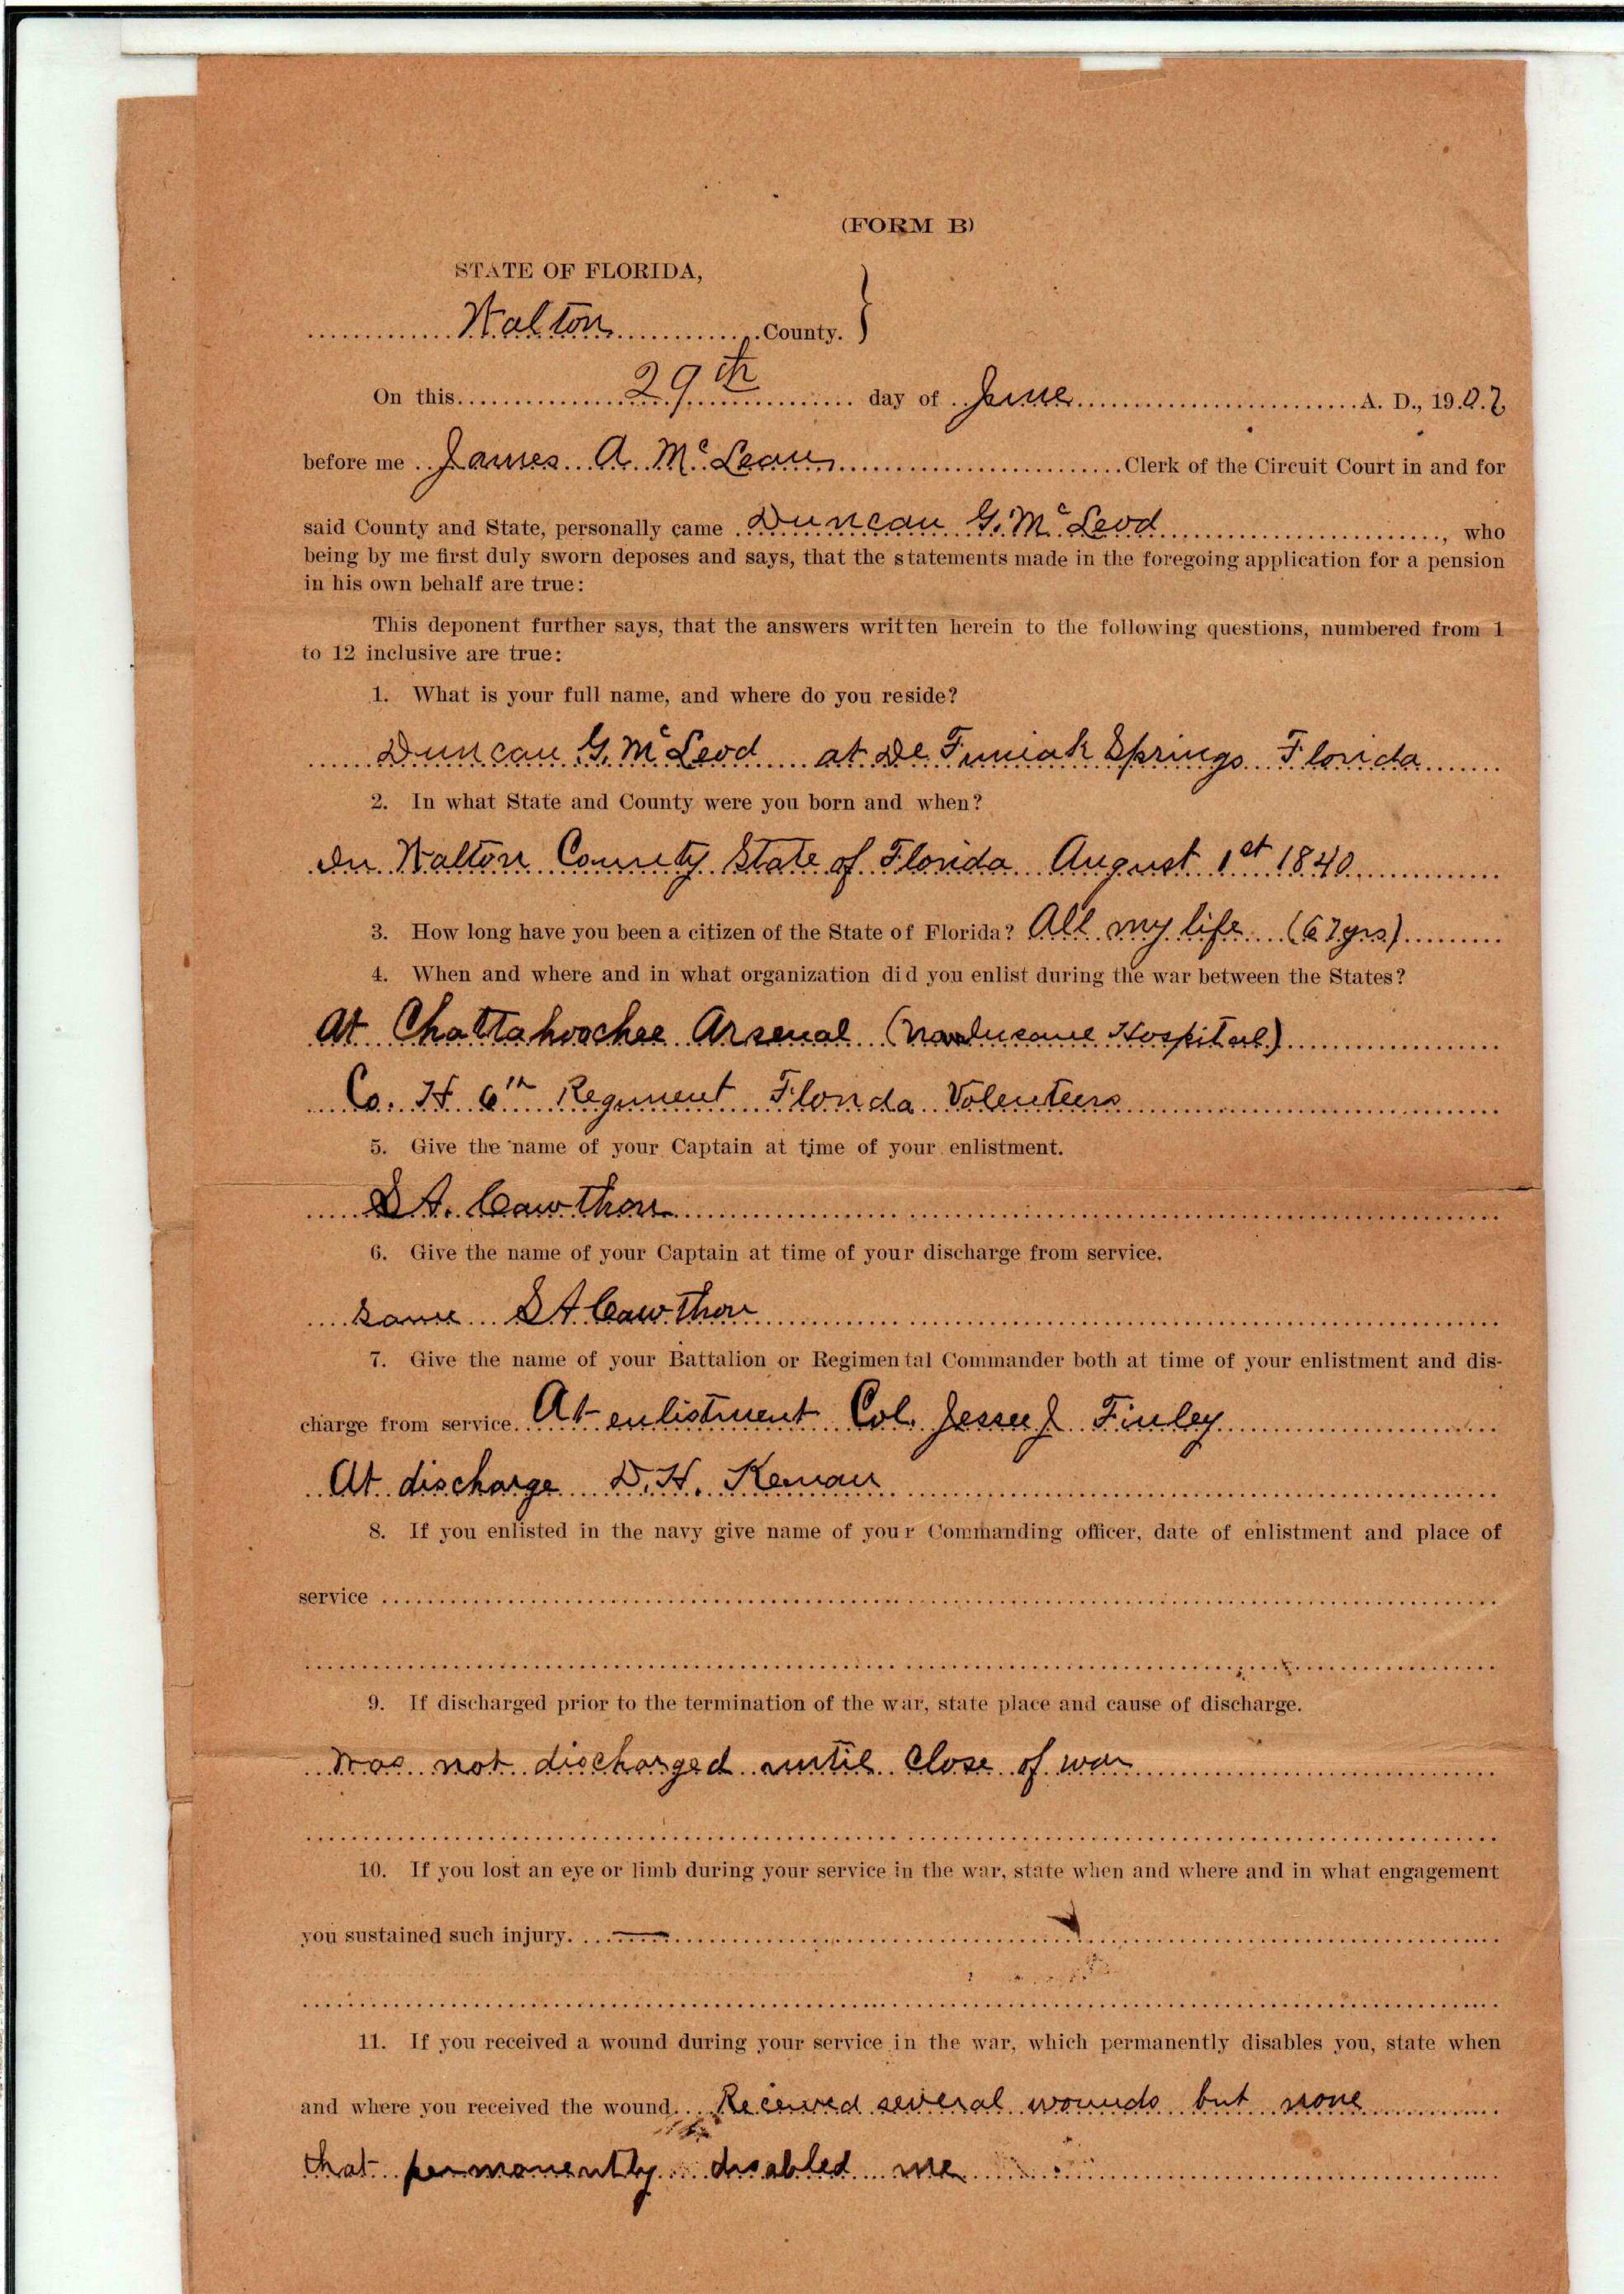 (FORM B)
STATE OF FLORIDA,
Walton County.
On this 29th day of June A. D., 1907
before me James A. McLean Clerk of the Circuit Court in and for
said County and State, personally came Duncan G. McLeod, who
being by me first duly sworn deposes and says, that the statements made in the foregoing application for a pension
in his own behalf are true:
This deponent further says, that the answers written herein to the following questions, numbered from 1
to 12 inclusive are true:
1. What is your full name, and where do you reside?
Duncan G. McLeod at De Funiak Springs Florida
2. In what State and County were you born and when?
In Walton County State of Florida August 1st 1840
3. How long have you been a citizen of the State of Florida? All my life (67 yrs)
4. When and where and in what organization did you enlist during the war between the States?
At Chattahoochee Arsenal (now Insane Hospital)
Co. H 6th Regiment Florida Volenteers
5. Give the name of your Captain at time of your enlistment.
S A. Cawthon
6. Give the name of your Captain at time of your discharge from service.
same S A Cawthon
7. Give the name of your Battalion or Regimental Commander both at time of your enlistment and dis-
charge from service. At enlistment Col. Jesse J Finley
At discharge D. H. Kenan
8. If you enlisted in the navy give name of your Commanding officer, date of enlistment and place of
service
9. If discharged prior to the termination of the war, state place and cause of discharge.
Was not discharged until close of war
10. If you lost an eye or limb during your service in the war, state when and where and in what engagement
you sustained such injury. —
11. If you received a wound during your service in the war, which permanently disables you, state when
and where you received the wound. Received several wounds but none
that permanently disabled me